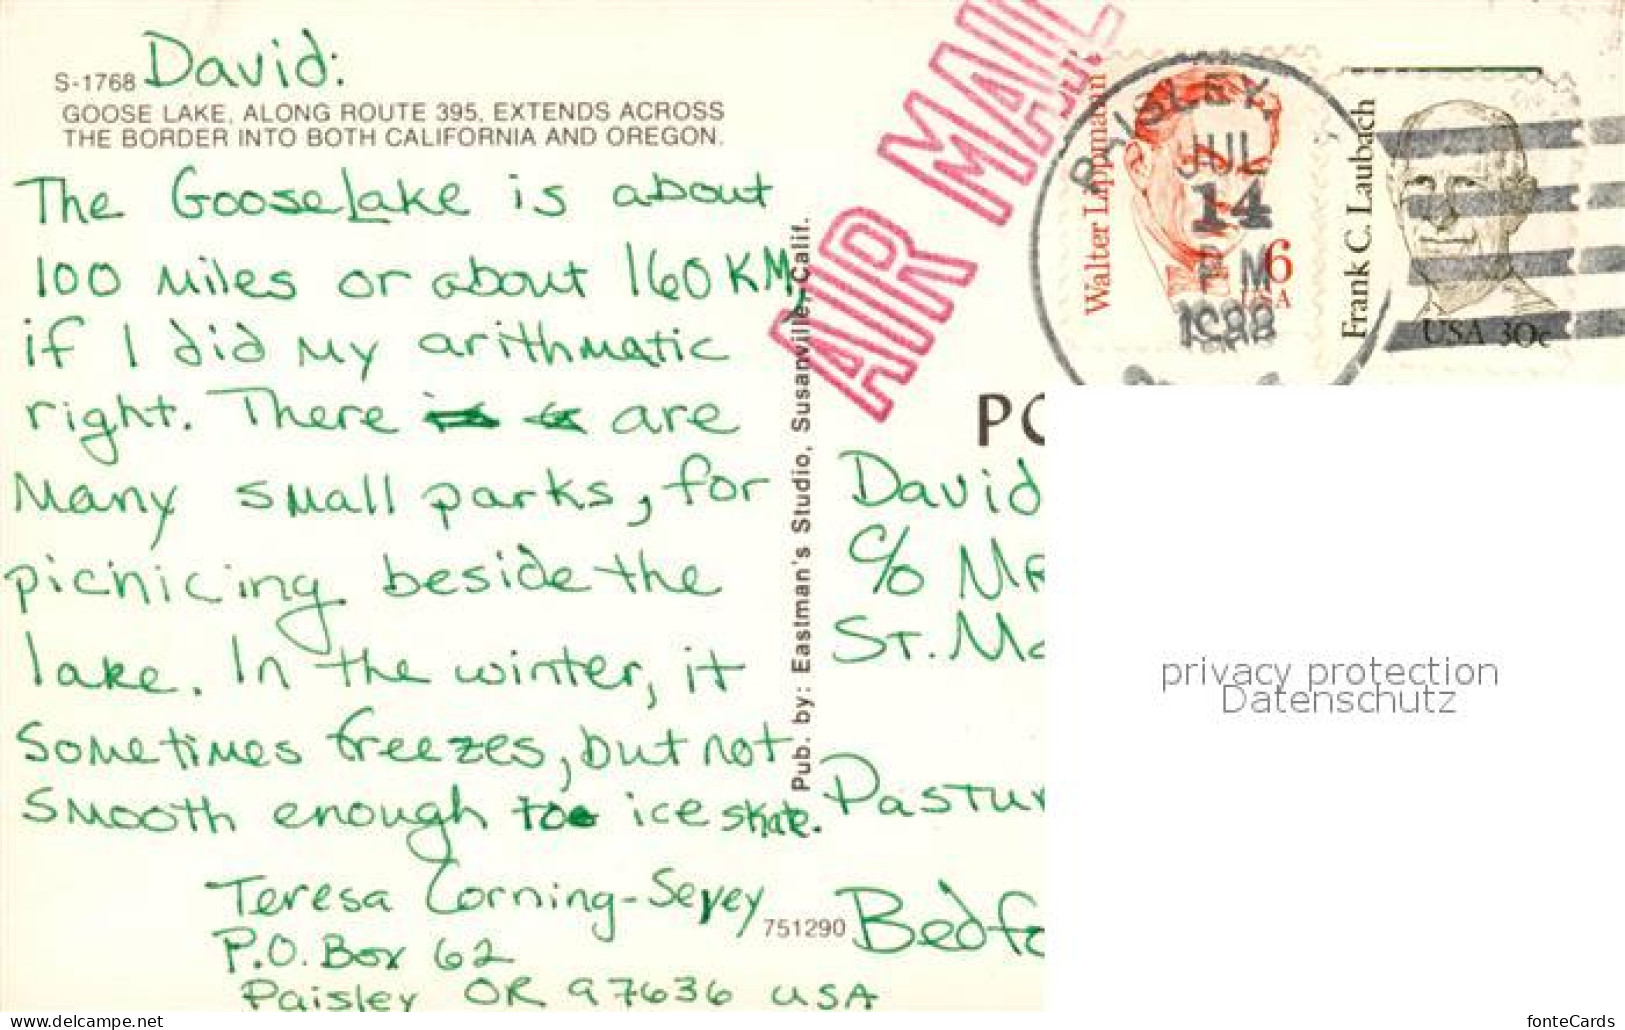 David:
S-1768
GOOSE LAKE, ALONG ROUTE 395, EXTENDS ACROSS
THE BORDER INTO BOTH CALIFORNIA AND OREGON.
The Goose Lake is about
100 miles or about 160 KM,
if I did my arithmatic
right. There are
many small parks, for
picnicing beside the
lake. In the winter, it
sometimes freezes, but not
smooth enough to ice skate.
Teresa Corning-Sevey
P.O. Box 62
Paisley OR 97636 USA
751290
Pub. by: Eastman's Studio, Susanville, Calif.
AIR MAIL
PAISLEY,
JUL
14
PM
1988
Walter Lippmann
6
USA
Frank C. Laubach
USA 30c
PO
David
c/o
St.
Pastur
Bedfo
privacy protection
Datenschutz
www.ansichtskartenversand.com
fonteCards